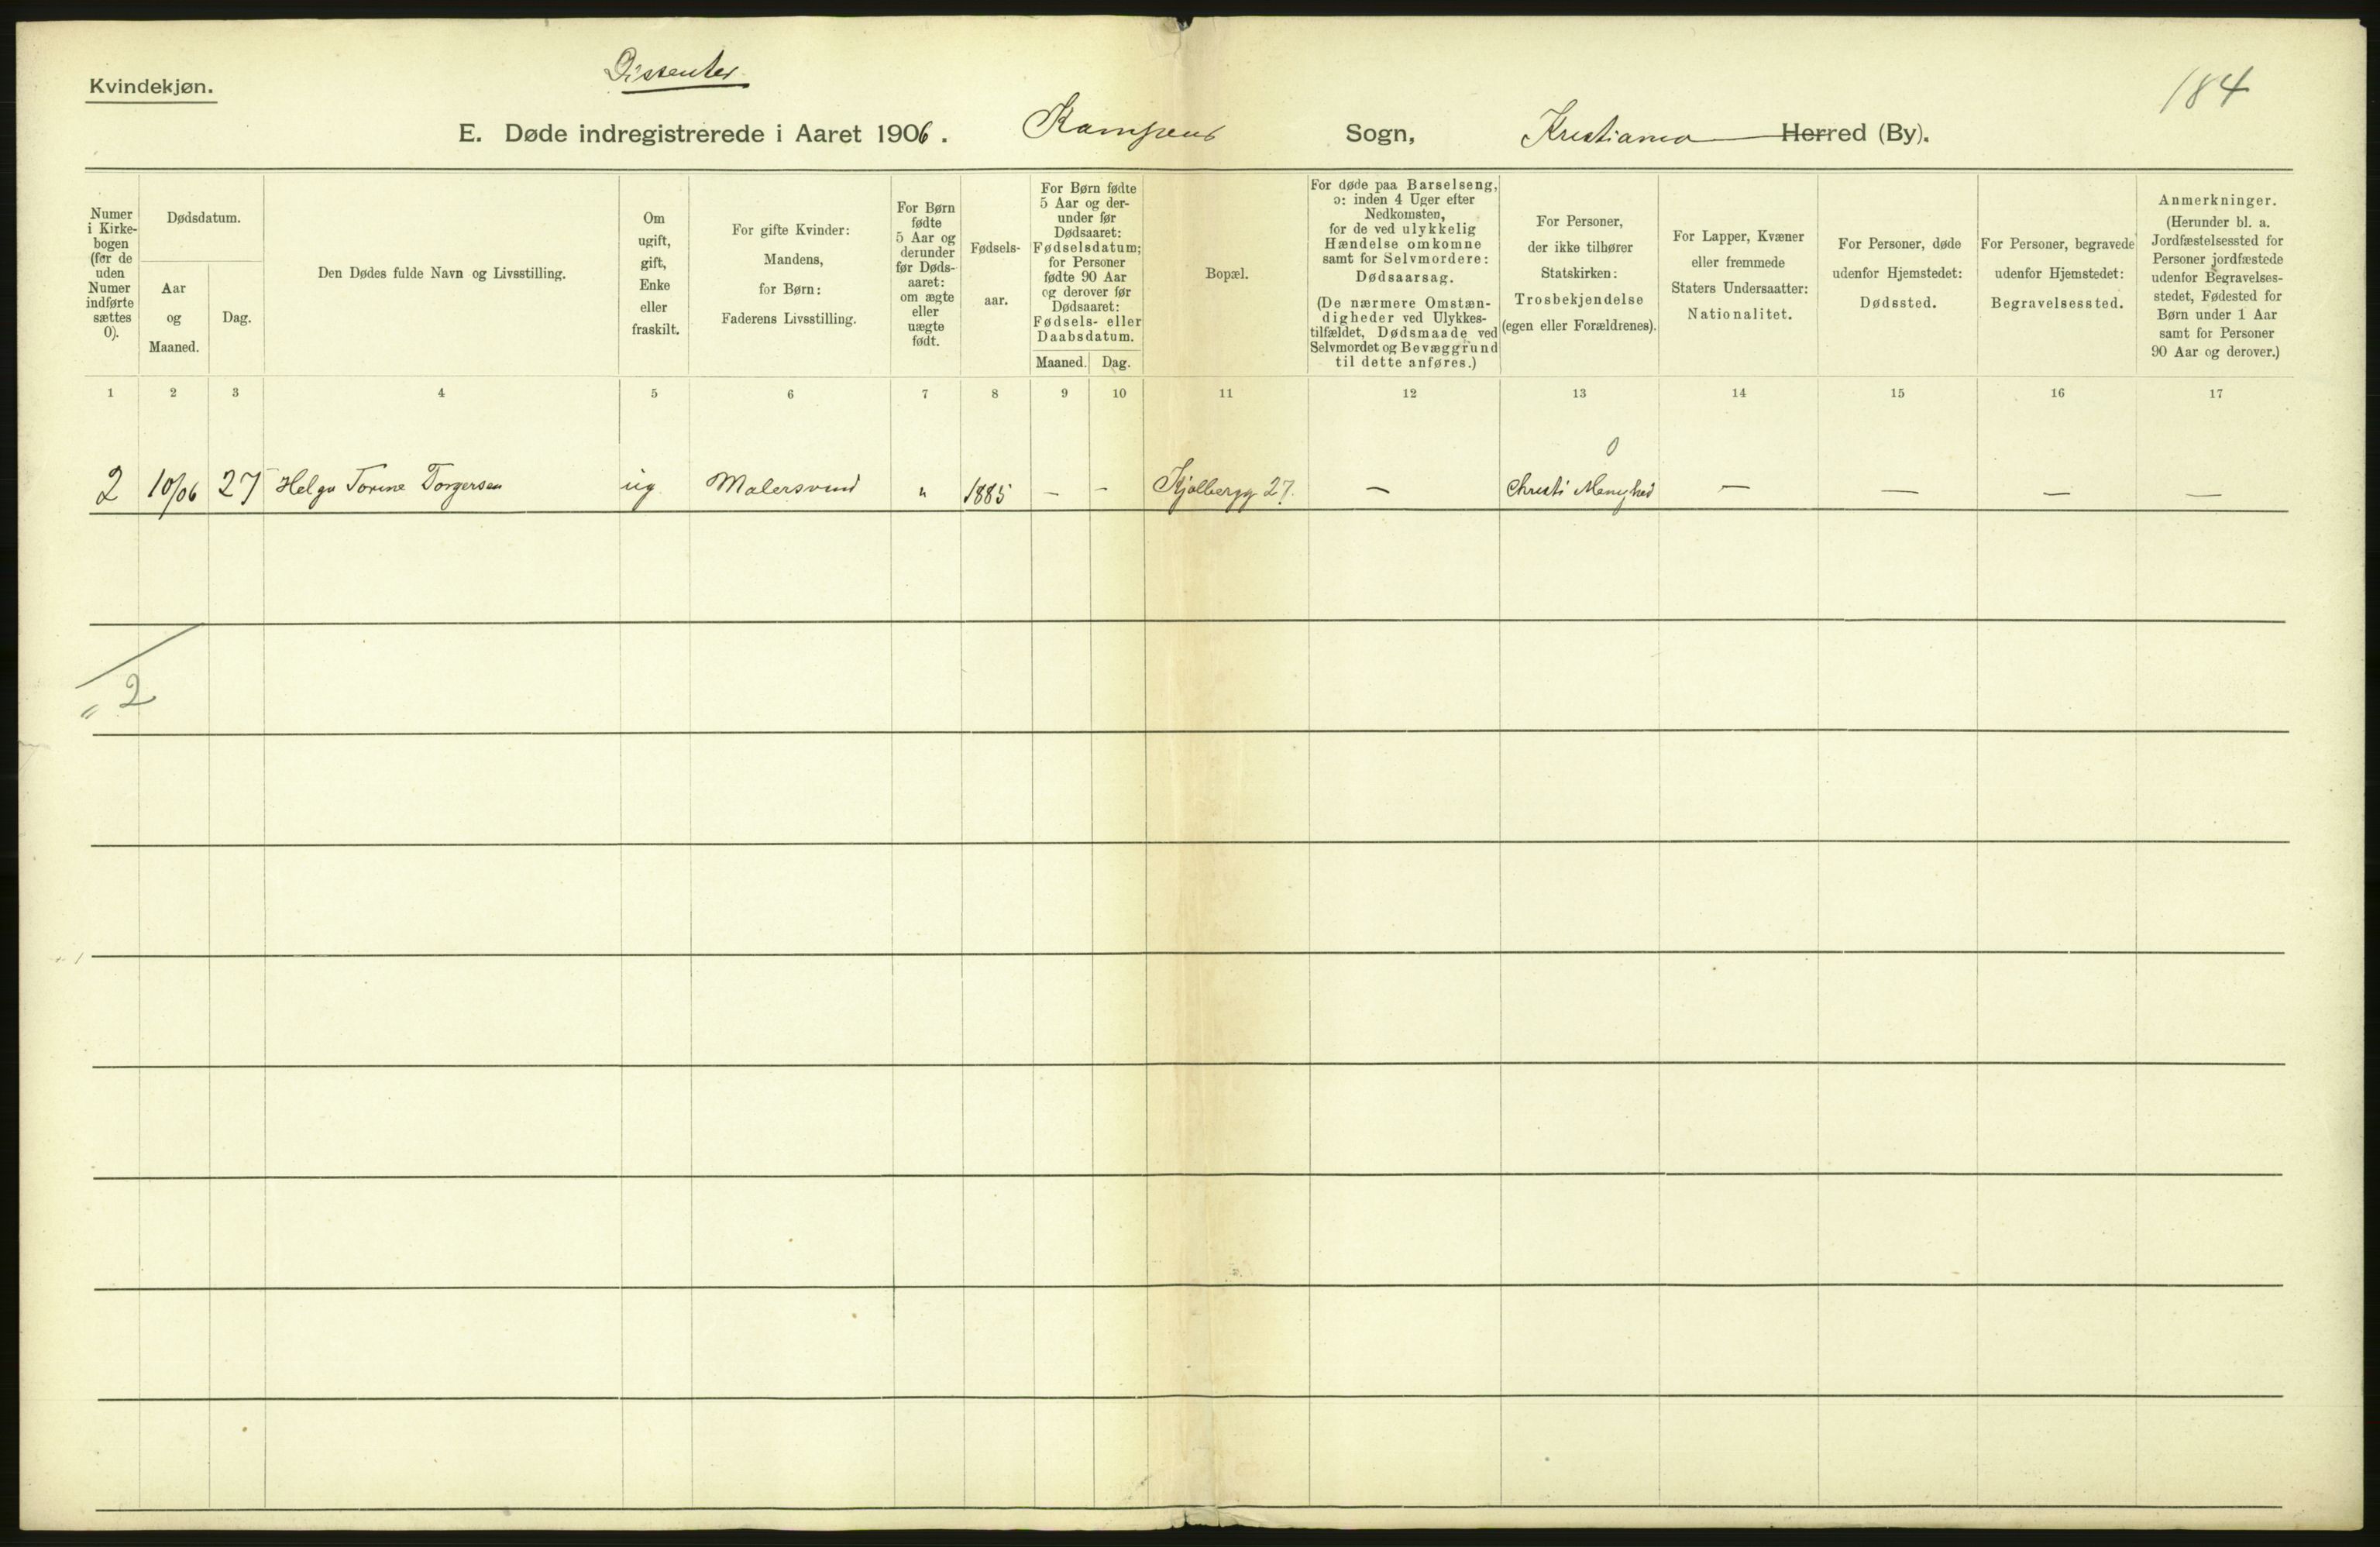 Kvindekjøn.
Dissenter
184
E. Døde indregistrerede i Aaret 1906. Kampens Sogn, Kristiania Herred (By).
Numer i Kirke-bogen (før de uden Numer indførte sættes 0).
Dødsdatum.
Aar og Maaned.
Dag.
Den Dødes fulde Navn og Livsstilling.
Om ugift, gift, Enke eller fraskilt.
For gifte Kvinder: Mandens, for Børn: Faderens Livsstilling.
For Børn fødte 5 Aar og derunder før Døds-aaret: om ægte eller uægte født.
Fødsels-aar.
For Børn fødte 5 Aar og der-under før Dødsaaret: Fødselsdatum; for Personer fødte 90 Aar og derover før Dødsaaret: Fødsels- eller Daabsdatum.
Maaned. Dag.
Bopæl.
For døde paa Barselseng, ɔ: inden 4 Uger efter Nedkomsten, for de ved ulykkelig Hændelse omkomne samt for Selvmordere: Dødsaarsag. (De nærmere Omstæn-digheder ved Ulykkes-tilfældet, Dødsmaade ved Selvmordet og Bevæggrund til dette anføres.)
For Personer, der ikke tilhører Statskirken: Trosbekjendelse (egen eller Forældrenes).
For Lapper, Kvæner eller fremmede Staters Undersaatter: Nationalitet.
For Personer, døde udenfor Hjemstedet: Dødssted.
For Personer, begravede udenfor Hjemstedet: Begravelsessted.
Anmerkninger. (Herunder bl. a. Jordfæstelsessted for Personer jordfæstede udenfor Begravelses-stedet, Fødested for Børn under 1 Aar samt for Personer 90 Aar og derover.)
1 2 3 4 5 6 7 8 9 10 11 12 13 14 15 16 17
0
2 10/06 27 Helga Torine Torgersen ug Malersvend " 1885 – – Kjølbergg 27. – Christi Menighed – – – –
" 2